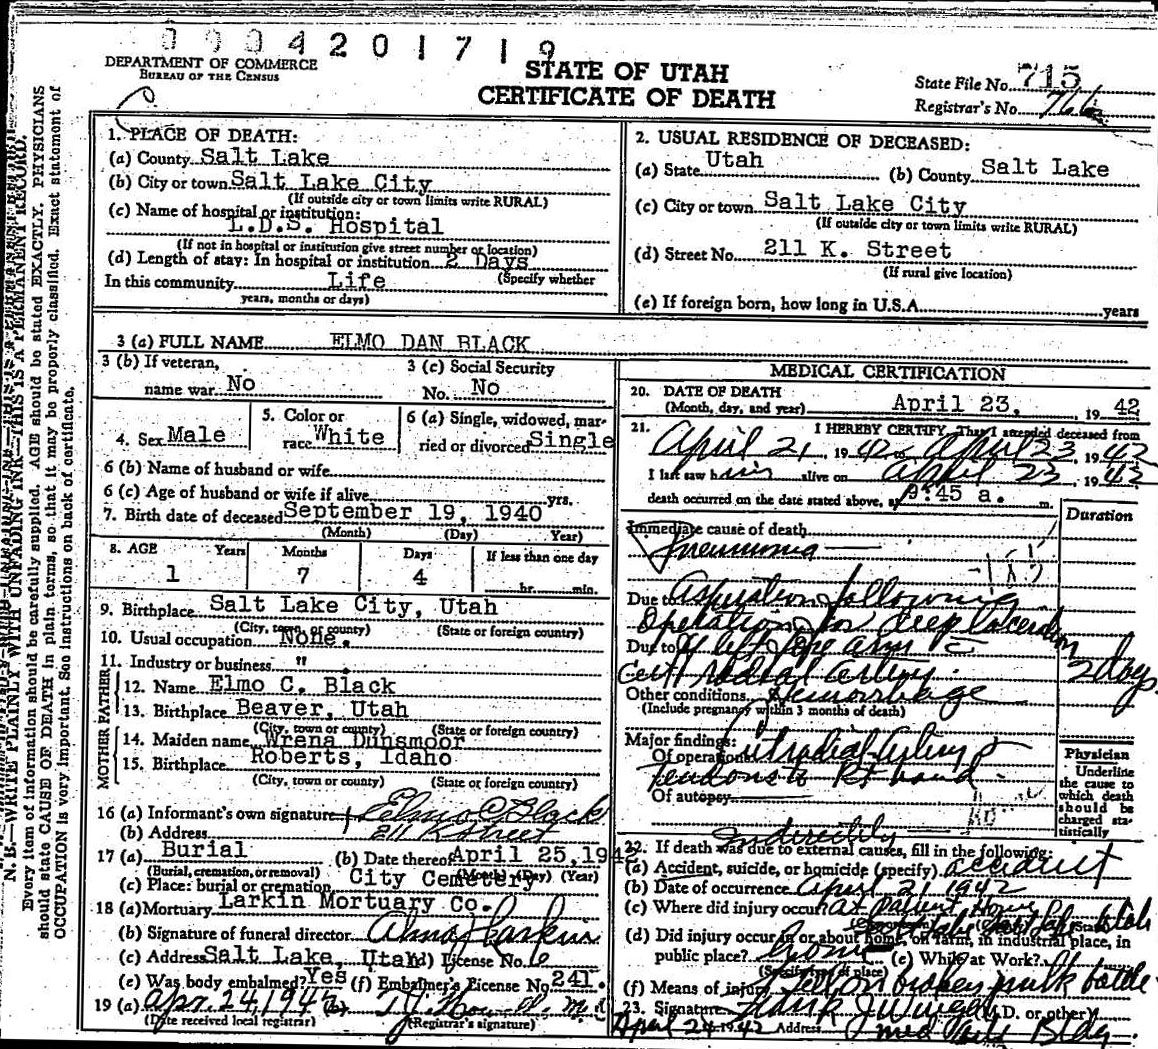 0004201719
DEPARTMENT OF COMMERCE
BUREAU OF THE CENSUS
STATE OF UTAH
CERTIFICATE OF DEATH
State File No. 715
Registrar's No. 766
N. B.—WRITE PLAINLY WITH UNFADING INK—THIS IS A PERMANENT RECORD.
Every item of information should be carefully supplied. AGE should be stated EXACTLY. PHYSICIANS
should state CAUSE OF DEATH in plain terms, so that it may be properly classified. Exact statement of
OCCUPATION is very important. See instructions on back of certificate.
1. PLACE OF DEATH:
(a) County Salt Lake
(b) City or town Salt Lake City
(If outside city or town limits write RURAL)
(c) Name of hospital or institution:
L.D.S. Hospital
(If not in hospital or institution give street number or location)
(d) Length of stay: In hospital or institution 2 Days
(Specify whether
In this community Life
years, months or days)
2. USUAL RESIDENCE OF DECEASED:
(a) State Utah (b) County Salt Lake
(c) City or town Salt Lake City
(If outside city or town limits write RURAL)
(d) Street No. 211 K. Street
(If rural give location)
(e) If foreign born, how long in U.S.A. years
3 (a) FULL NAME ELMO DAN BLACK
3 (b) If veteran,
name war No
3 (c) Social Security
No. No
4. Sex Male
5. Color or
race White
6 (a) Single, widowed, mar-
ried or divorced Single
6 (b) Name of husband or wife
6 (c) Age of husband or wife if alive yrs.
7. Birth date of deceased September 19, 1940
(Month) (Day) Year)
8. AGE Years Months Days If less than one day
1 7 4 hr. min.
9. Birthplace Salt Lake City, Utah
(City, town, or county) (State or foreign country)
10. Usual occupation None.
11. Industry or business "
FATHER
12. Name Elmo C. Black
13. Birthplace Beaver, Utah
(City, town or county) (State or foreign country)
MOTHER
14. Maiden name Wrena Dunsmoor
15. Birthplace Roberts, Idaho
(City, town or county) (State or foreign country)
16 (a) Informant's own signature Elmo C Black
(b) Address 211 K Street
17 (a) Burial (b) Date thereof April 25, 1942
(Burial, cremation, or removal) (Month) (Day) (Year)
(c) Place: burial or cremation City Cemetery
18 (a) Mortuary Larkin Mortuary Co.
(b) Signature of funeral director Alma Larkin
(c) Address Salt Lake, Utah (d) License No. 6
(e) Was body embalmed? Yes (f) Embalmer's License No. 241.
19 (a) Apr. 24, 1942 (b) T.J. Howell M.D.
(Date received local registrar) (Registrar's signature)
MEDICAL CERTIFICATION
20. DATE OF DEATH
(Month, day, and year) April 23, 19 42
21. I HEREBY CERTIFY, That I attended deceased from
April 21, 19 42 to April 23 19 42
I last saw him alive on April 23 19 42
death occurred on the date stated above, at 9:45 a. m.
Duration
Immediate cause of death
Pneumonia
Due to Aspiration following
Operation for deep laceration
Due to of left
Cut radial artery.
2 days
Other conditions Hemorrhage
(Include pregnancy within 3 months of death)
Major findings:
Of operation Cut radial artery &
tendons to Rt hand.
Of autopsy
Physician
Underline
the cause to
which death
should be
charged sta-
tistically
indirectly
22. If death was due to external causes, fill in the following:
(a) Accident, suicide, or homicide (specify) accident
(b) Date of occurrence April 21 1942
(c) Where did injury occur? at parent Home
Salt Lake Utah
(d) Did injury occur in or about home, on farm, in industrial place, in
public place? home (e) While at Work?
(Specify type of place)
(f) Means of injury fell on broken milk bottle
23. Signature Frank J (M.D. or other)
April 24 1942 Address Med Arts Bldg.